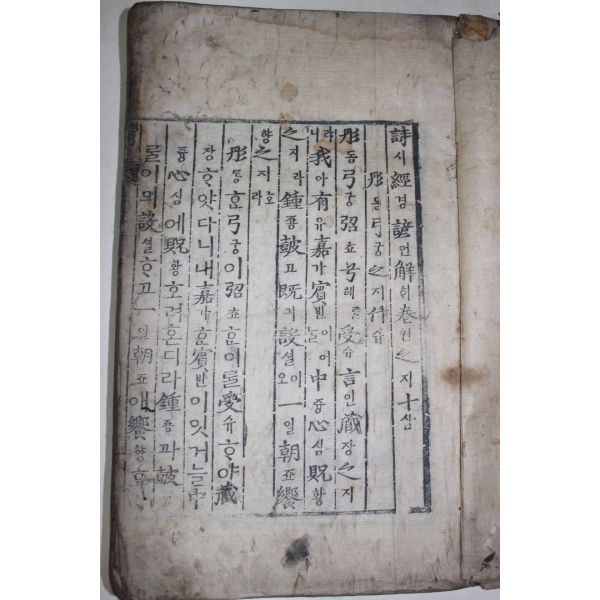 詩시經경諺언解ᄒᆡ卷권之지十십
彤동弓궁之지什습
彤동弓궁弨쵸兮혜를受슈言언藏장之지
라니我아有유嘉가賓빈이어놀中듕心심貺황
之지라鍾죵鼓고旣긔設셜이오一일朝죠饗
향之지호라
彤동ᄒᆞᆫ弓궁이弨쵸ᄒᆞᆫ이ᄅᆞᆯ受슈ᄒᆞ야藏
장ᄒᆞ얏다니내嘉가ᄒᆞᆫ賓빈이잇거늘中
듕心심에貺황호려ᄒᆞᆫ디라鍾죵과鼓고
ᄅᆞᆯ이믜設셜ᄒᆞ고一일朝죠애饗향호